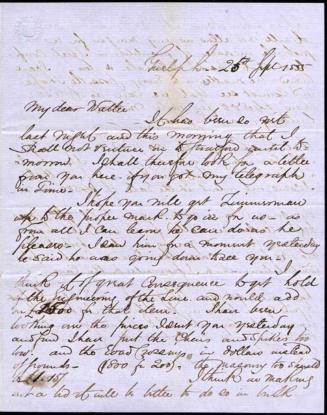 Guelph 25th Sept 1855
My dear Walter
It has been so wet
last night and this morning that I
shall not venture in to Stratford until to
morrow. I shall therefore look for a letter
from you here - if you got my telegraph
in time.
I hope you will get Zimmerman
up to the proper mark to go in for us - as
from all I can learn he can do as he
pleases - I saw him for a moment yesterday
he said he was going down
I
think it of great consequence to get hold
of the of the Line and would add
for that item. I have been
looking over the prices I sent you yesterday
and find I have put the Chairs and spikes too
low - and the Road Crossings in Dollars instead
of pounds - (800 for 200) - the
I think in making
out a it will be better to do so in bulk